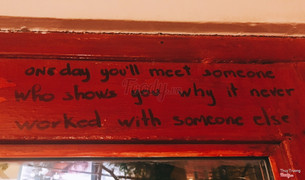 one day you'll meet someone
who shows you why it never
worked with someone else